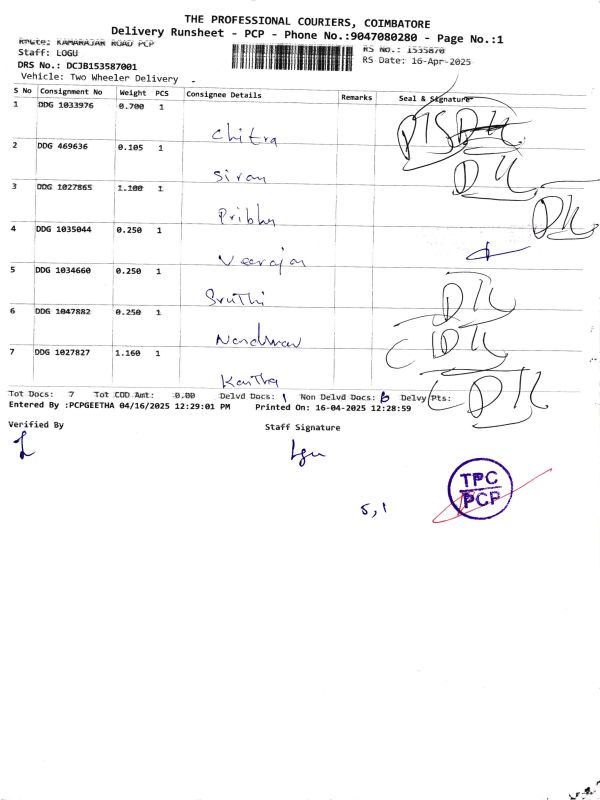 THE PROFESSIONAL COURIERS, COIMBATORE
Delivery Runsheet - PCP - Phone No.:9047080280 - Page No.:1
Route: KAMARAJAR ROAD PCP RS No.: 1535870
Staff: LOGU RS Date: 16-Apr-2025
DRS No.: DCJB153587001
Vehicle: Two Wheeler Delivery
S No Consignment No Weight PCS Consignee Details Remarks Seal & Signature
1 DDG 1033976 0.700 1 Chitra
2 DDG 469636 0.105 1 Siran DK
3 DDG 1027865 1.100 1 Pribhu DK
4 DDG 1035044 0.250 1 Veerajan
5 DDG 1034660 0.250 1 Sruthi DK
6 DDG 1047882 0.250 1 DK
7 DDG 1027827 1.160 1 Kavitha DK
Tot Docs: 7 Tot COD Amt: 0.00 Delvd Docs: 1 Non Delvd Docs: 6 Delvy Pts:
Entered By :PCPGEETHA 04/16/2025 12:29:01 PM Printed On: 16-04-2025 12:28:59
Verified By Staff Signature
5,1
TPC
PCP